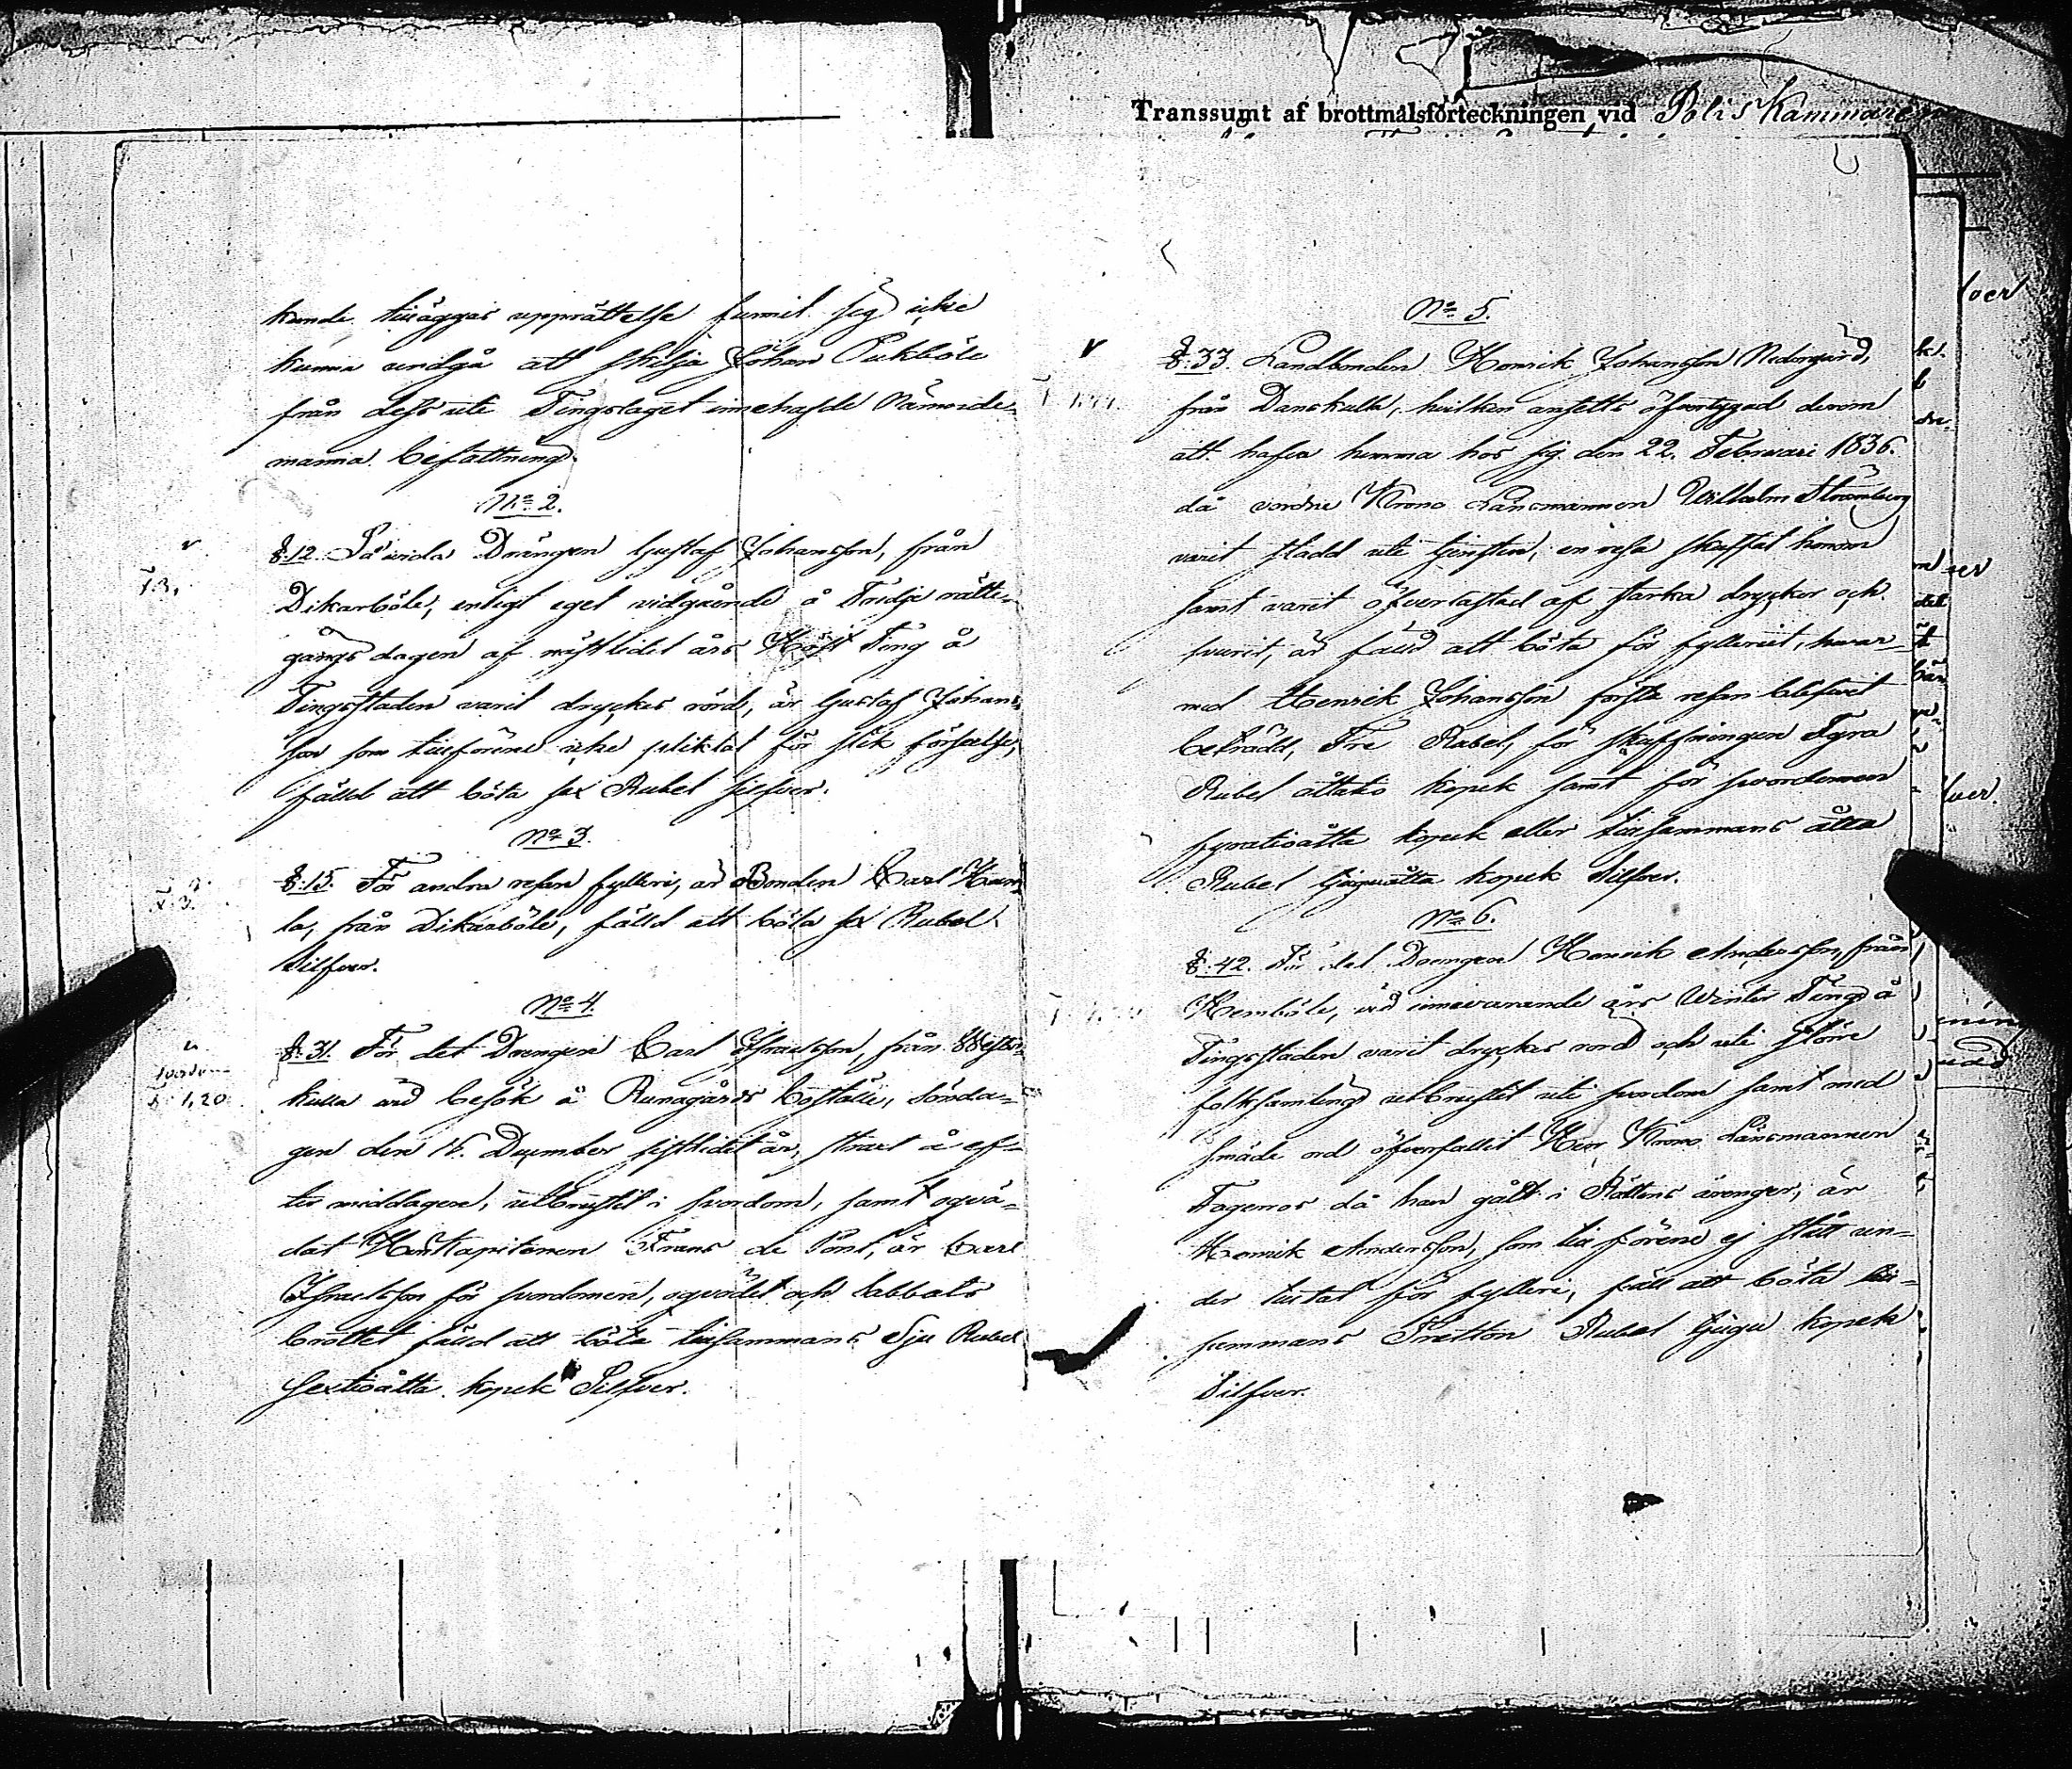 Transsumt af brottmålsförteckningen vid Polis Kammaren
kande tilläggas upprättelse funnit sig icke
kunna undgå att skilja Johan Pukböle
från dess uti Tingslaget innehafde Nämnde-
manna befattning.
No 2.
§:12. Såsom Drängen Gustaf Johansson, från
Dikarböle, enligt eget vidgående å Tredje rätte-
gångs dagen af nästlidet års Höst Ting å
Tingsstaden varit dryckes rörd, är Gustaf Johans-
son som tillförene icke pliktat för slik förseelse,
fälld att böta sex Rubel silfver.
No 3.
§:15. För andra resan fylleri, är Bonden Carl
la, från Dikarböle, fälld att böta sex Rubel
Silfver.
No 4.
§:31. För det Drengen Carl Israelsson, från Wester-
kulla vid besök å Runagårds boställe, Sönda-
gen den December sistlidet år, strax å ef-
ter middagen, utbrustit i svordom, samt oqvä-
dat Herr Kapitenen Frans de Pont, är Carl
Israelsson för svordomen, oqvädet och sabbats
brottet fälld att böta tillsammans Sju Rubel
Sextioåtta kopek Silfver.
1,20
No 5.
§:33. Landbonden Henrik Johansson Nedergård,
från Danskulla, hvilken ansetts öfvertygad derom
att hafva hemma hos sig den 22. Februari 1836.
då vordne Krono Länsmannen Wilhelm Strömberg
varit stadd uti tjensten, en resa skuffat honom
samt varit öfverlastad af starka drycker och
svurit, är fälld att böta för fylleriet, hvar-
med Henrik Johansson första resan blifvit
beträdd, Tre Rubel, för skuffningen Fyra
Rubel åttatio kopek samt för svordomen
fyratioåtta kopek eller tillsammans åtta
Rubel tjuguåtta kopek Silfver.
No 6.
§:42. För det Drengen Henrik Andersson, från
Hemböle, vid innevarande års Winter Ting å
Tingsstaden varit dryckes rörd och uti större
folksamling utbrustit uti svordom samt med
smäde ord öfverfallit Herr Krono Länsmannen
Fagerroos då han gått i Rättens ärenger, är
Henrik Andersson, som tillförene ej stått un-
der tilltal för fylleri, fäld att böta till-
sammans Tretton Rubel tjugu kopek
Silfver.